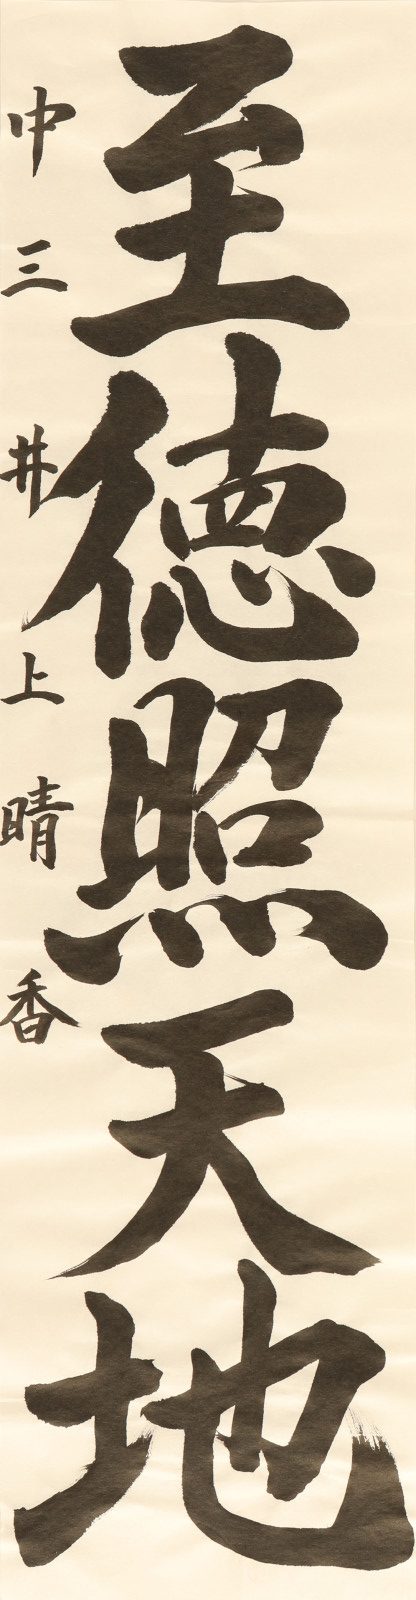 至徳照天地
中三 井上晴香